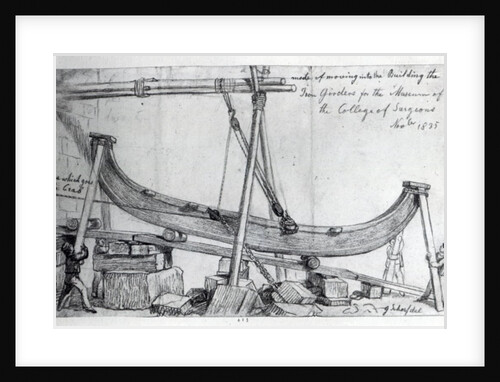 mode of moving into the Building the
Iron Girders for the Museum of
the College of Surgeons
Novbr 1835
which goes
G Scharf del